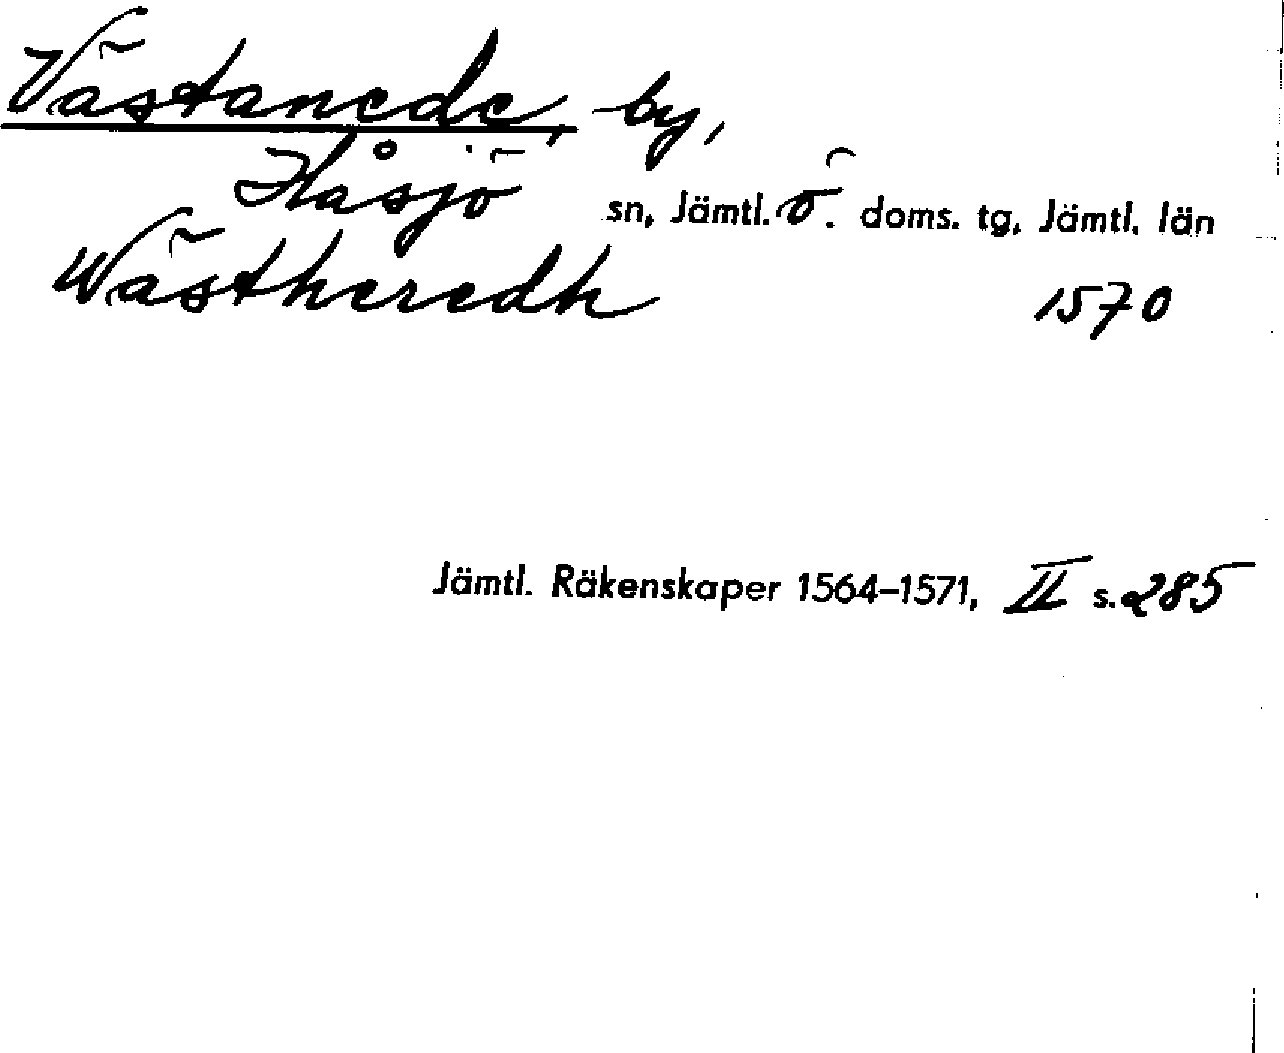 Västanede, by,
Håsjö sn, Jämtl. Ö. doms. tg, Jämtl. län
Wästheredh 1570
Jämtl. Räkenskaper 1564-1571, II s. 285